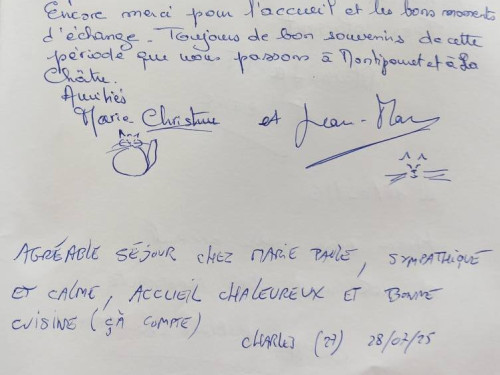 Encore merci pour l'accueil et les bons moments
d'échange. Toujours de bon souvenirs de cette
période que nous passons à Montipouret et à La
Châtre.
Amitiés
Marie Christine et Jean-Marc
AGRÉABLE SÉJOUR CHEZ MARIE PAULE, SYMPATHIQUE
ET CALME, ACCUEIL CHALEUREUX ET BONNE
CUISINE (ÇÀ COMPTE)
CHARLES (27) 28/07/25